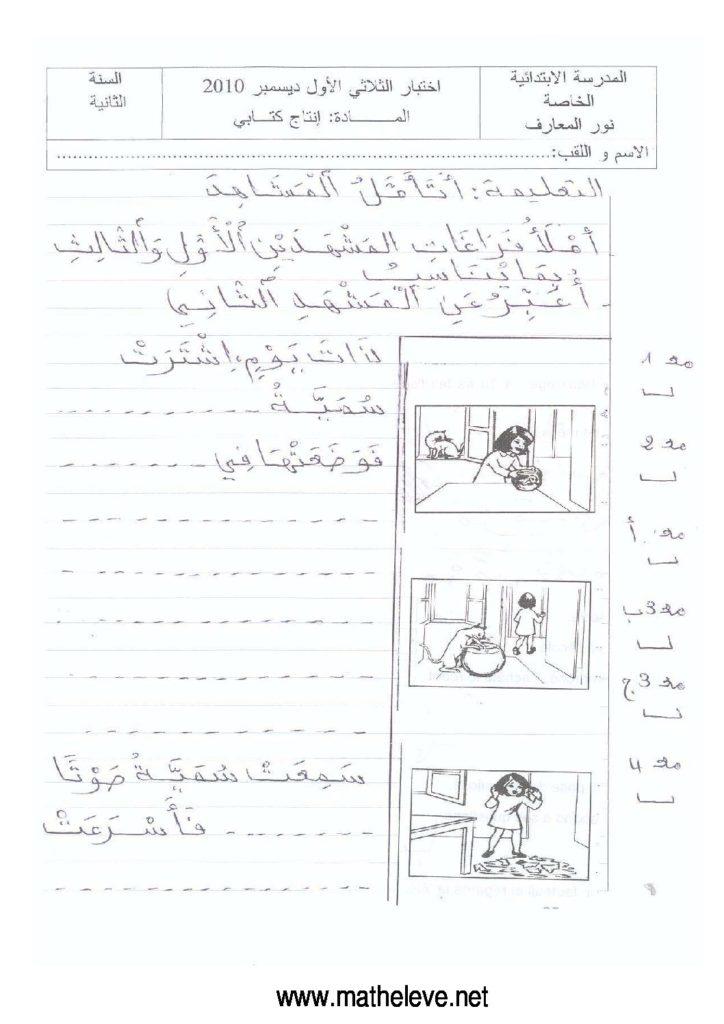 المدرسة الابتدائية
الخاصة
نور المعارف
اختبار الثلاثي الأول ديسمبر 2010
المـــــــادة: إنتاج كتــابي
السنة
الثانية
الاسم و اللقب:......................................................................
التعليمة: أَتَأَمَّلُ الْمَشَاهِدَ
أَمْلَأُ فَرَاغَاتِ المَشْهَدَيْنِ الْأَوَّلِ وَالثَّالِثِ
بِمَا يُنَاسِبُ
- أُعَبِّرُ عَنِ الْمَشْهَدِ الثَّانِي
ذَاتَ يَوْمٍ، اِشْتَرَتْ
سُمَيَّةُ - - - - - - - - - -
فَوَضَعَتْهَا فِي - - - - - -
سَمِعَتْ سُمَيَّةُ صَوْتًا
- - - - - - - فَأَسْرَعَتْ
مع 1
مع 2
مع أ
مع 3 ب
مع 3 ج
مع 4
www.matheleve.net